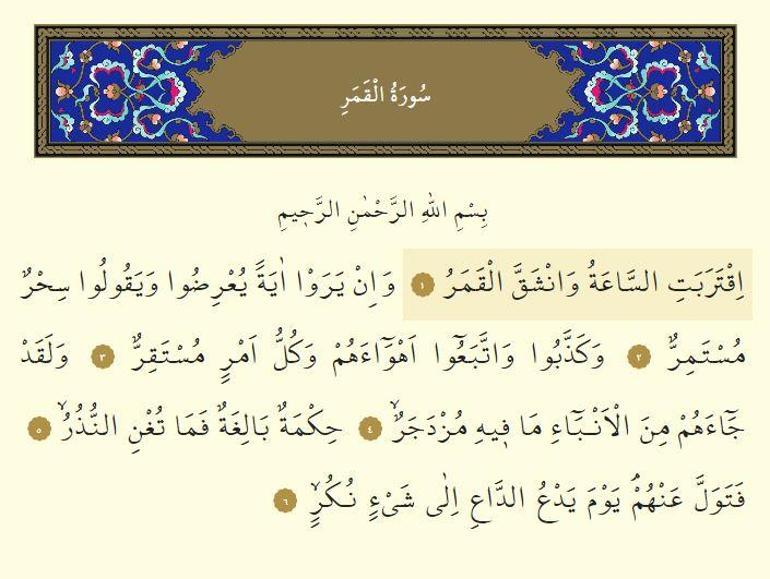 سُورَةُ الْقَمَرِ
بِسْمِ اللهِ الرَّحْمٰنِ الرَّحٖيمِ
اِقْتَرَبَتِ السَّاعَةُ وَانْشَقَّ الْقَمَرُ ١ وَاِنْ يَرَوْا اٰيَةً يُعْرِضُوا وَيَقُولُوا سِحْرٌ
مُسْتَمِرٌّ ٢ وَكَذَّبُوا وَاتَّبَعُٓوا اَهْوَٓاءَهُمْ وَكُلُّ اَمْرٍ مُسْتَقِرٌّ ٣ وَلَقَدْ
جَٓاءَهُمْ مِنَ الْاَنْبَٓاءِ مَا فٖيهِ مُزْدَجَرٌۙ ٤ حِكْمَةٌ بَالِغَةٌ فَمَا تُغْنِ النُّذُرُۙ ٥
فَتَوَلَّ عَنْهُمْۘ يَوْمَ يَدْعُ الدَّاعِ اِلٰى شَیْءٍ نُكُرٍۙ ٦